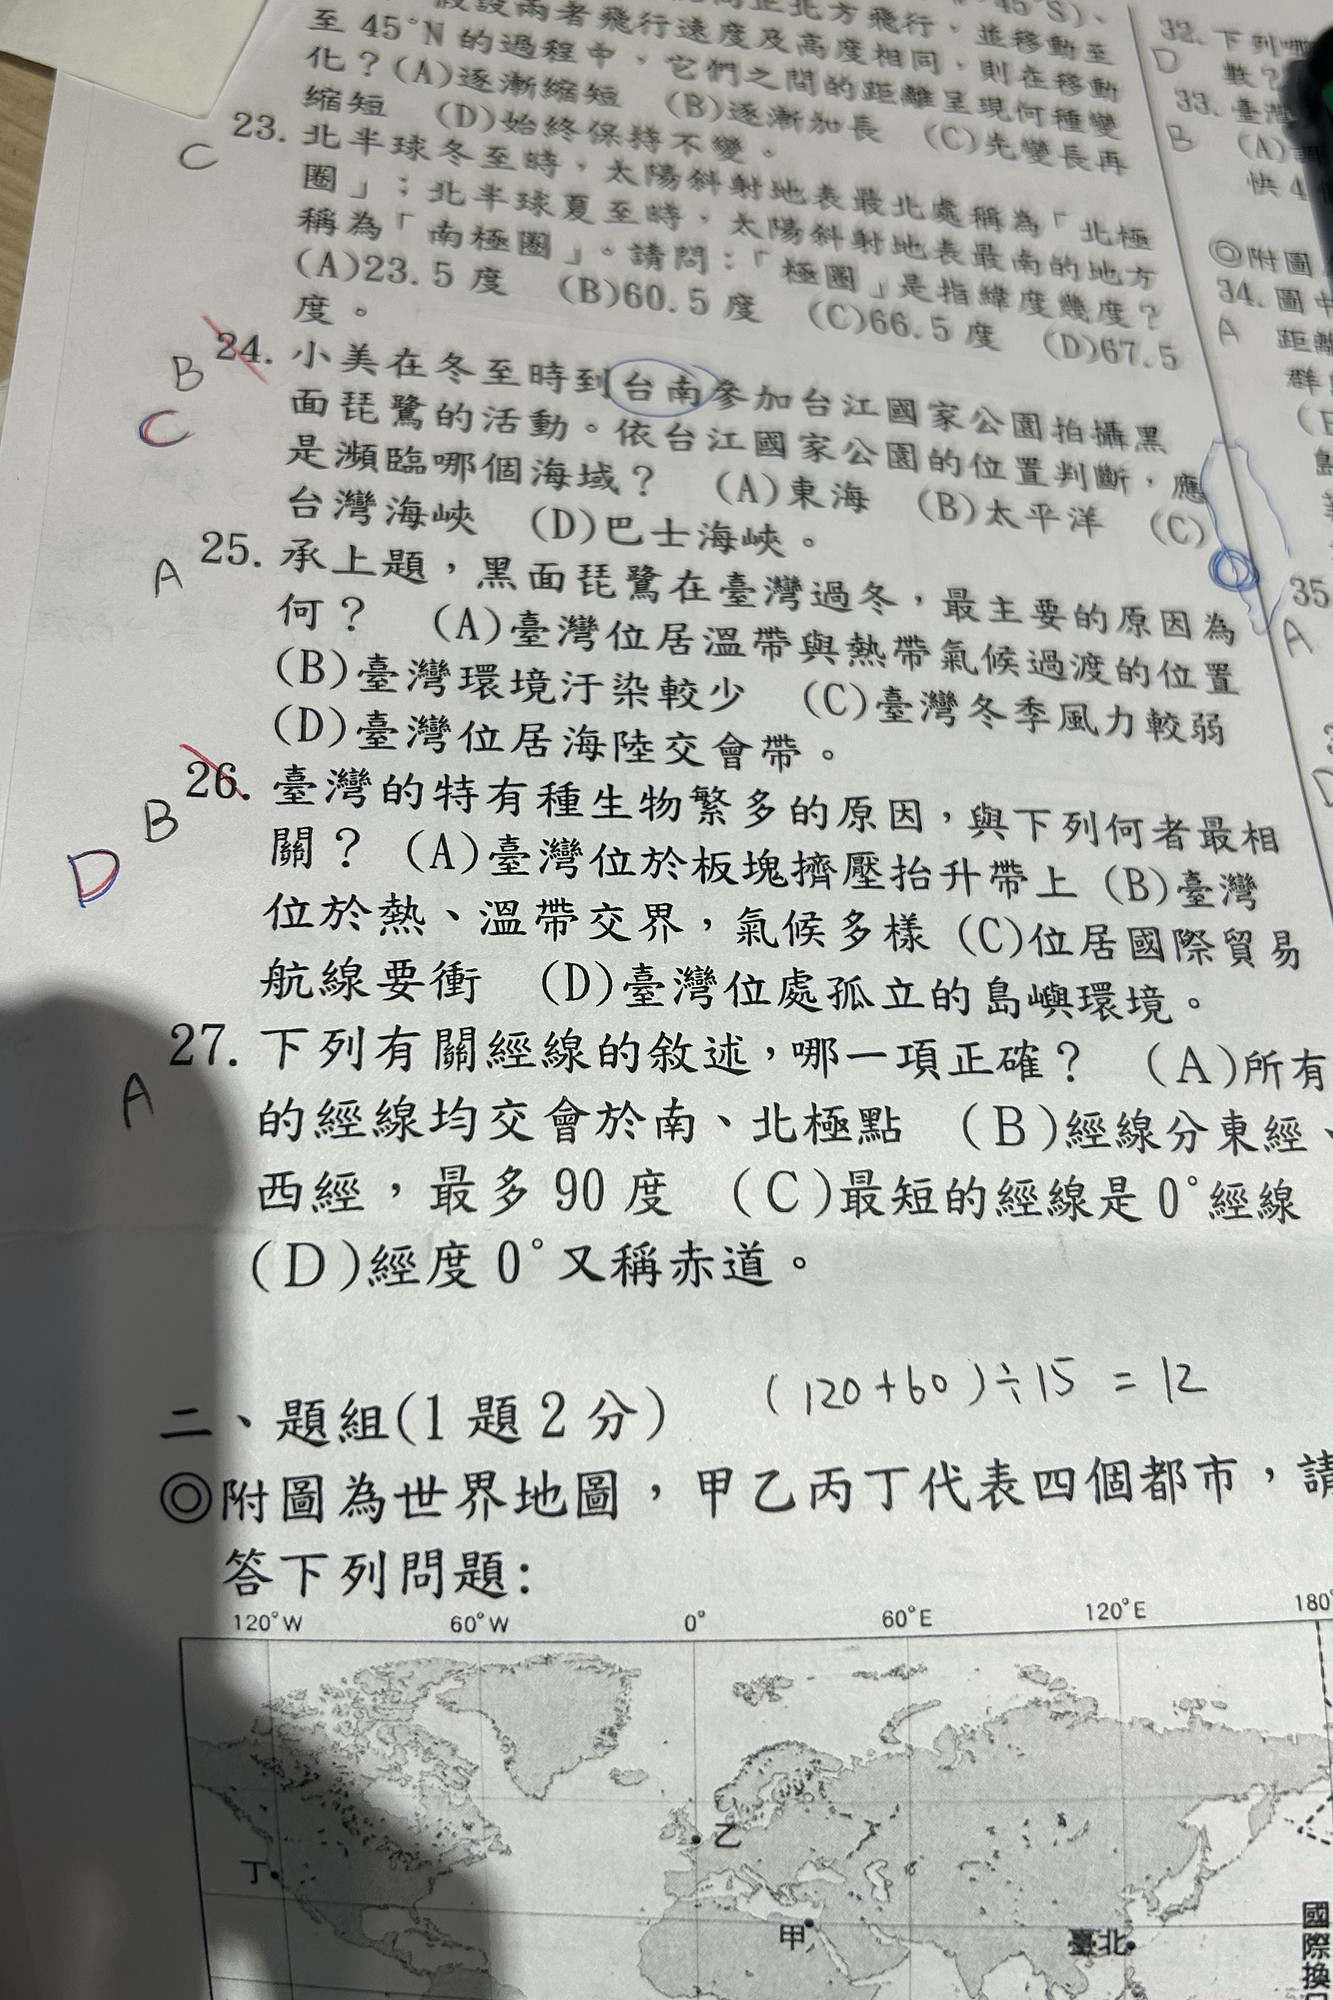 假設兩者飛行速度及高度相同,則在移動
至 45°N 的過程中,它們之間的距離呈現何種變
化?(A)逐漸縮短 (B)逐漸加長 (C)先變長再
縮短 (D)始終保持不變。
C
23. 北半球冬至時,太陽斜射地表最北處稱為「北極
圈」;北半球夏至時,太陽斜射地表最南的地方
稱為「南極圈」。請問:「極圈」是指緯度幾度?
(A)23.5 度 (B)60.5 度 (C)66.5 度 (D)67.5
度。
B
C
24. 小美在冬至時到台南參加台江國家公園拍攝黑
面琵鷺的活動。依台江國家公園的位置判斷,應
是瀕臨哪個海域? (A)東海 (B)太平洋 (C)
台灣海峽 (D)巴士海峽。
A
25. 承上題,黑面琵鷺在臺灣過冬,最主要的原因為
何? (A)臺灣位居溫帶與熱帶氣候過渡的位置
(B)臺灣環境汙染較少 (C)臺灣冬季風力較弱
(D)臺灣位居海陸交會帶。
B
D
26. 臺灣的特有種生物繁多的原因,與下列何者最相
關? (A)臺灣位於板塊擠壓抬升帶上 (B)臺灣
位於熱、溫帶交界,氣候多樣 (C)位居國際貿易
航線要衝 (D)臺灣位處孤立的島嶼環境。
A
27. 下列有關經線的敘述,哪一項正確? (A)所有
的經線均交會於南、北極點 (B)經線分東經、
西經,最多 90 度 (C)最短的經線是 0°經線
(D)經度 0°又稱赤道。
(120+60)÷15 = 12
二、題組(1 題 2 分)
◎附圖為世界地圖,甲乙丙丁代表四個都市,請
答下列問題:
120°W 60°W 0° 60°E 120°E 180°
乙
丁
甲
臺北
國際換
32. 下列
D
數?
33. 臺灣
B
(A)
快 4
◎附圖
34. 圖中
A
距離
群
35
A